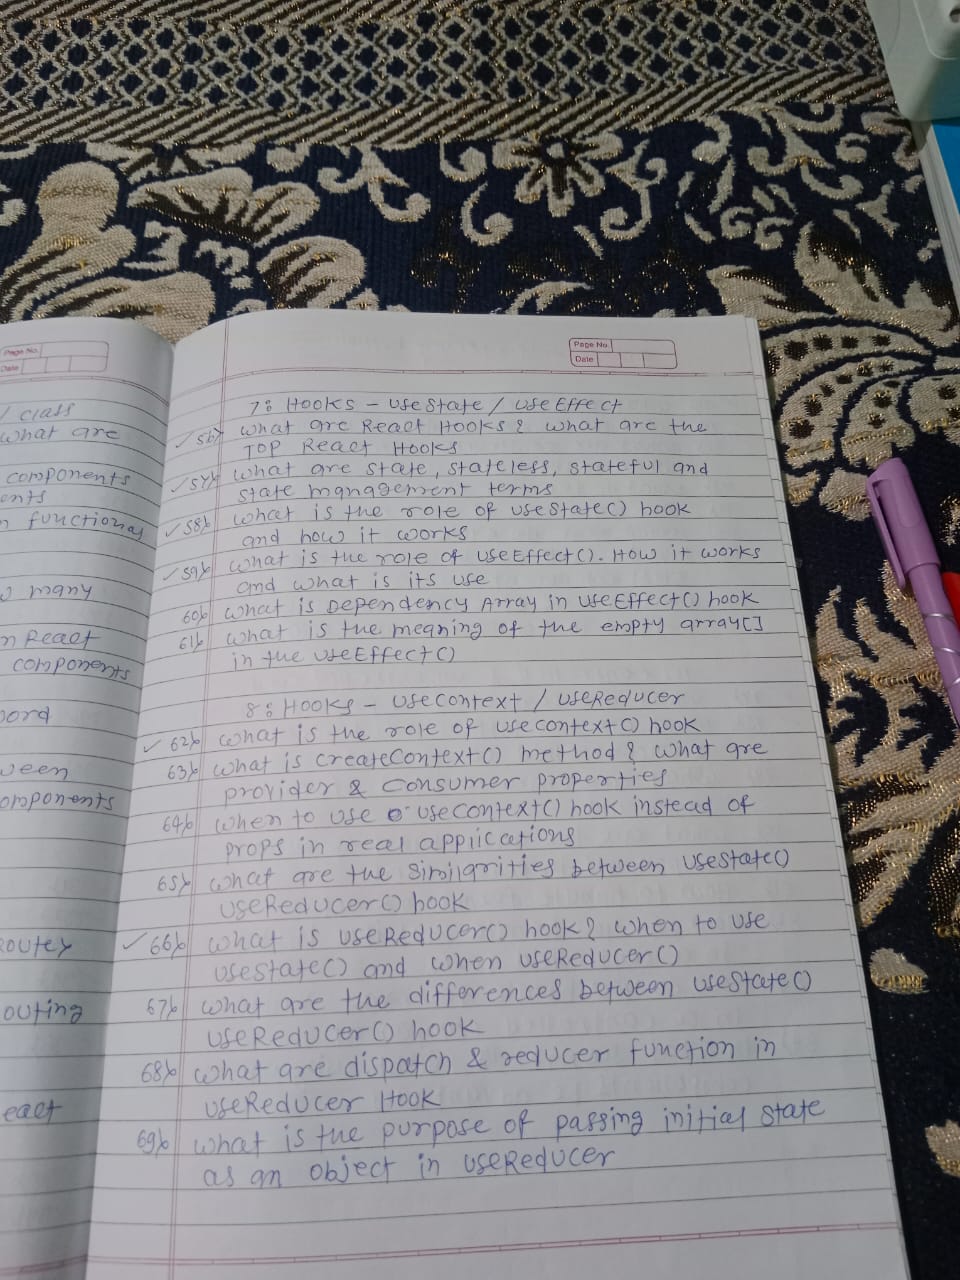 Page No.
Date
/ class
what are
components
ents
n functional
many
n React
components
word
ween
omponents
outing
eact
Page No.
Date
7: Hooks - useState / useEffect
56) what are React Hooks? what are the
TOP React Hooks
57) what are state, stateless, stateful and
state management terms
58) what is the role of useState() hook
and how it works
59) what is the role of useEffect(). How it works
and what is its use
60) what is Dependency Array in useEffect() hook
61) what is the meaning of the empty array[]
in the useEffect()
8: Hooks - useContext / useReducer
62) what is the role of usecontext() hook
63) what is createContext() method? what are
provider & consumer properties
64) when to use usecontext() hook instead of
props in real applications
65) what are the similarities between useState()
useReducer() hook
66) what is useReducer() hook? when to use
usestate() and when useReducer()
67) what are the differences between useState()
useReducer() hook
68) what are dispatch & reducer function in
useReducer Hook
69) what is the purpose of passing initial state
as an object in useReducer